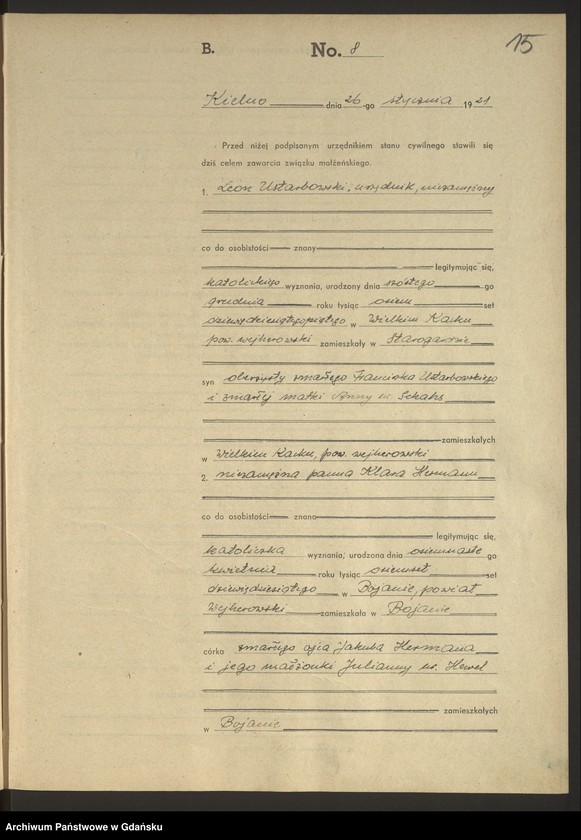 15
B. No. 8
Kielno dnia 26-go stycznia 1921
Przed niżej podpisanym urzędnikiem stanu cywilnego stawili się
dziś celem zawarcia związku małżeńskiego.
1. Leon Ustarbowski, urzędnik, niezamężny
co do osobistości znany
legitymując się,
katolickiego wyznania, urodzony dnia szóstego go
grudnia roku tysiąc osiem set
dziewiędziesiątegopiątego w Wielkim Kacku
pow. wejherowski zamieszkały w Starogardzie
syn oberżysty zmarłego Franciszka Ustarbowskiego
i zmarłej matki Anny ur.
zamieszkałych
w Wielkim Kacku, pow. wejherowski
2. niezamężna panna Klara Hermann
co do osobistości znana
legitymując się,
katolicka wyznania, urodzona dnia osiemnaste go
kwietnia roku tysiąc osiemset set
dziewiędziesiątego w Bojanie, powiat
Wejherowski zamieszkała w Bojanie
córka zmarłego ojca Jakuba Hermana
i jego małżonki Julianny ur. Hewel
zamieszkałych
w Bojanie
Archiwum Państwowe w Gdańsku